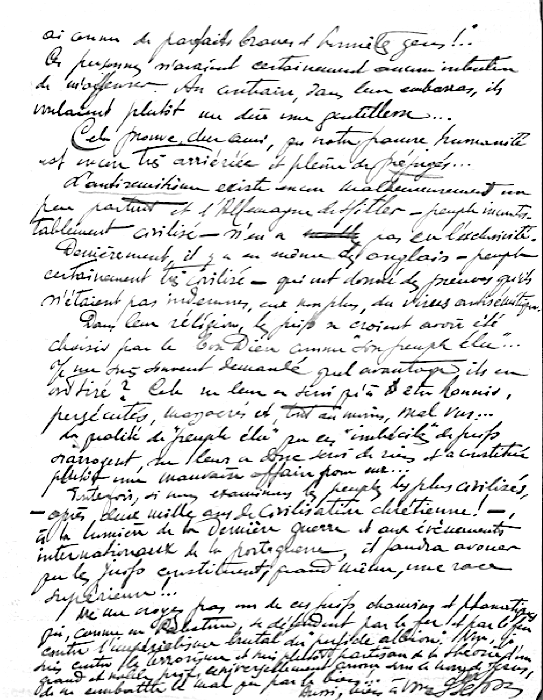 ai connu de parfaits braves et honnêtes gens!"
Ces personnes n'avaient certainement aucune intention
de m'offenser. Au contraire, dans leur embarras, ils
voulaient plutôt me dire une gentillesse...
Cela prouve, cher ami, que notre pauvre humanité
est encore très arriérée et pleine de préjugés...
L'antisémitisme existe encore malheureusement un
peu partout et l'Allemagne de Hitler - peuple incontes-
tablement civilisé - n'en a pas eu l'exclusivité.
Dernièrement, il y a eu même des anglais - peuple
certainement très civilisé - qui ont donné des preuves qu'ils
n'étaient pas indemnes, eux non plus, du virus antisémitique.
Dans leur réligion, les juifs se croient avoir été
choisis par le Bon Dieu comme "son peuple élu"...
Je me suis souvent demandé quel avantage ils en
ont tiré? Cela ne leur a servi qu'à être honnis,
persécutés, massacrés et, tout au moins, mal vus...
La qualité de "peuple élu" que ces "imbéciles" de juifs
s'arrogent, ne leur a donc servi de rien et a constitué
plutôt une mauvaise affaire pour eux...
Toutefois, si nous examinons les peuples les plus civilisés,
- après deux mille ans de civilisation chrétienne! -,
à la lumière de la dernière guerre et aux évènements
internationaux de la postguerre, il faudra avouer
que les juifs constituent, quand même, une race
supérieure...
Ne me croyez pas un de ces juifs chauvins et
qui, comme en Palestine, se défendent par le fer et par le feu
contre l'impérialisme brutal du perfide albion! Non, je
suis contre le terrorisme et suis plutôt partisan de la théorie d'un
grand et noble juif, universellement connu sous le nom de Jésus,
de ne combattre le mal que par le bien...
Aussi, bien à vous